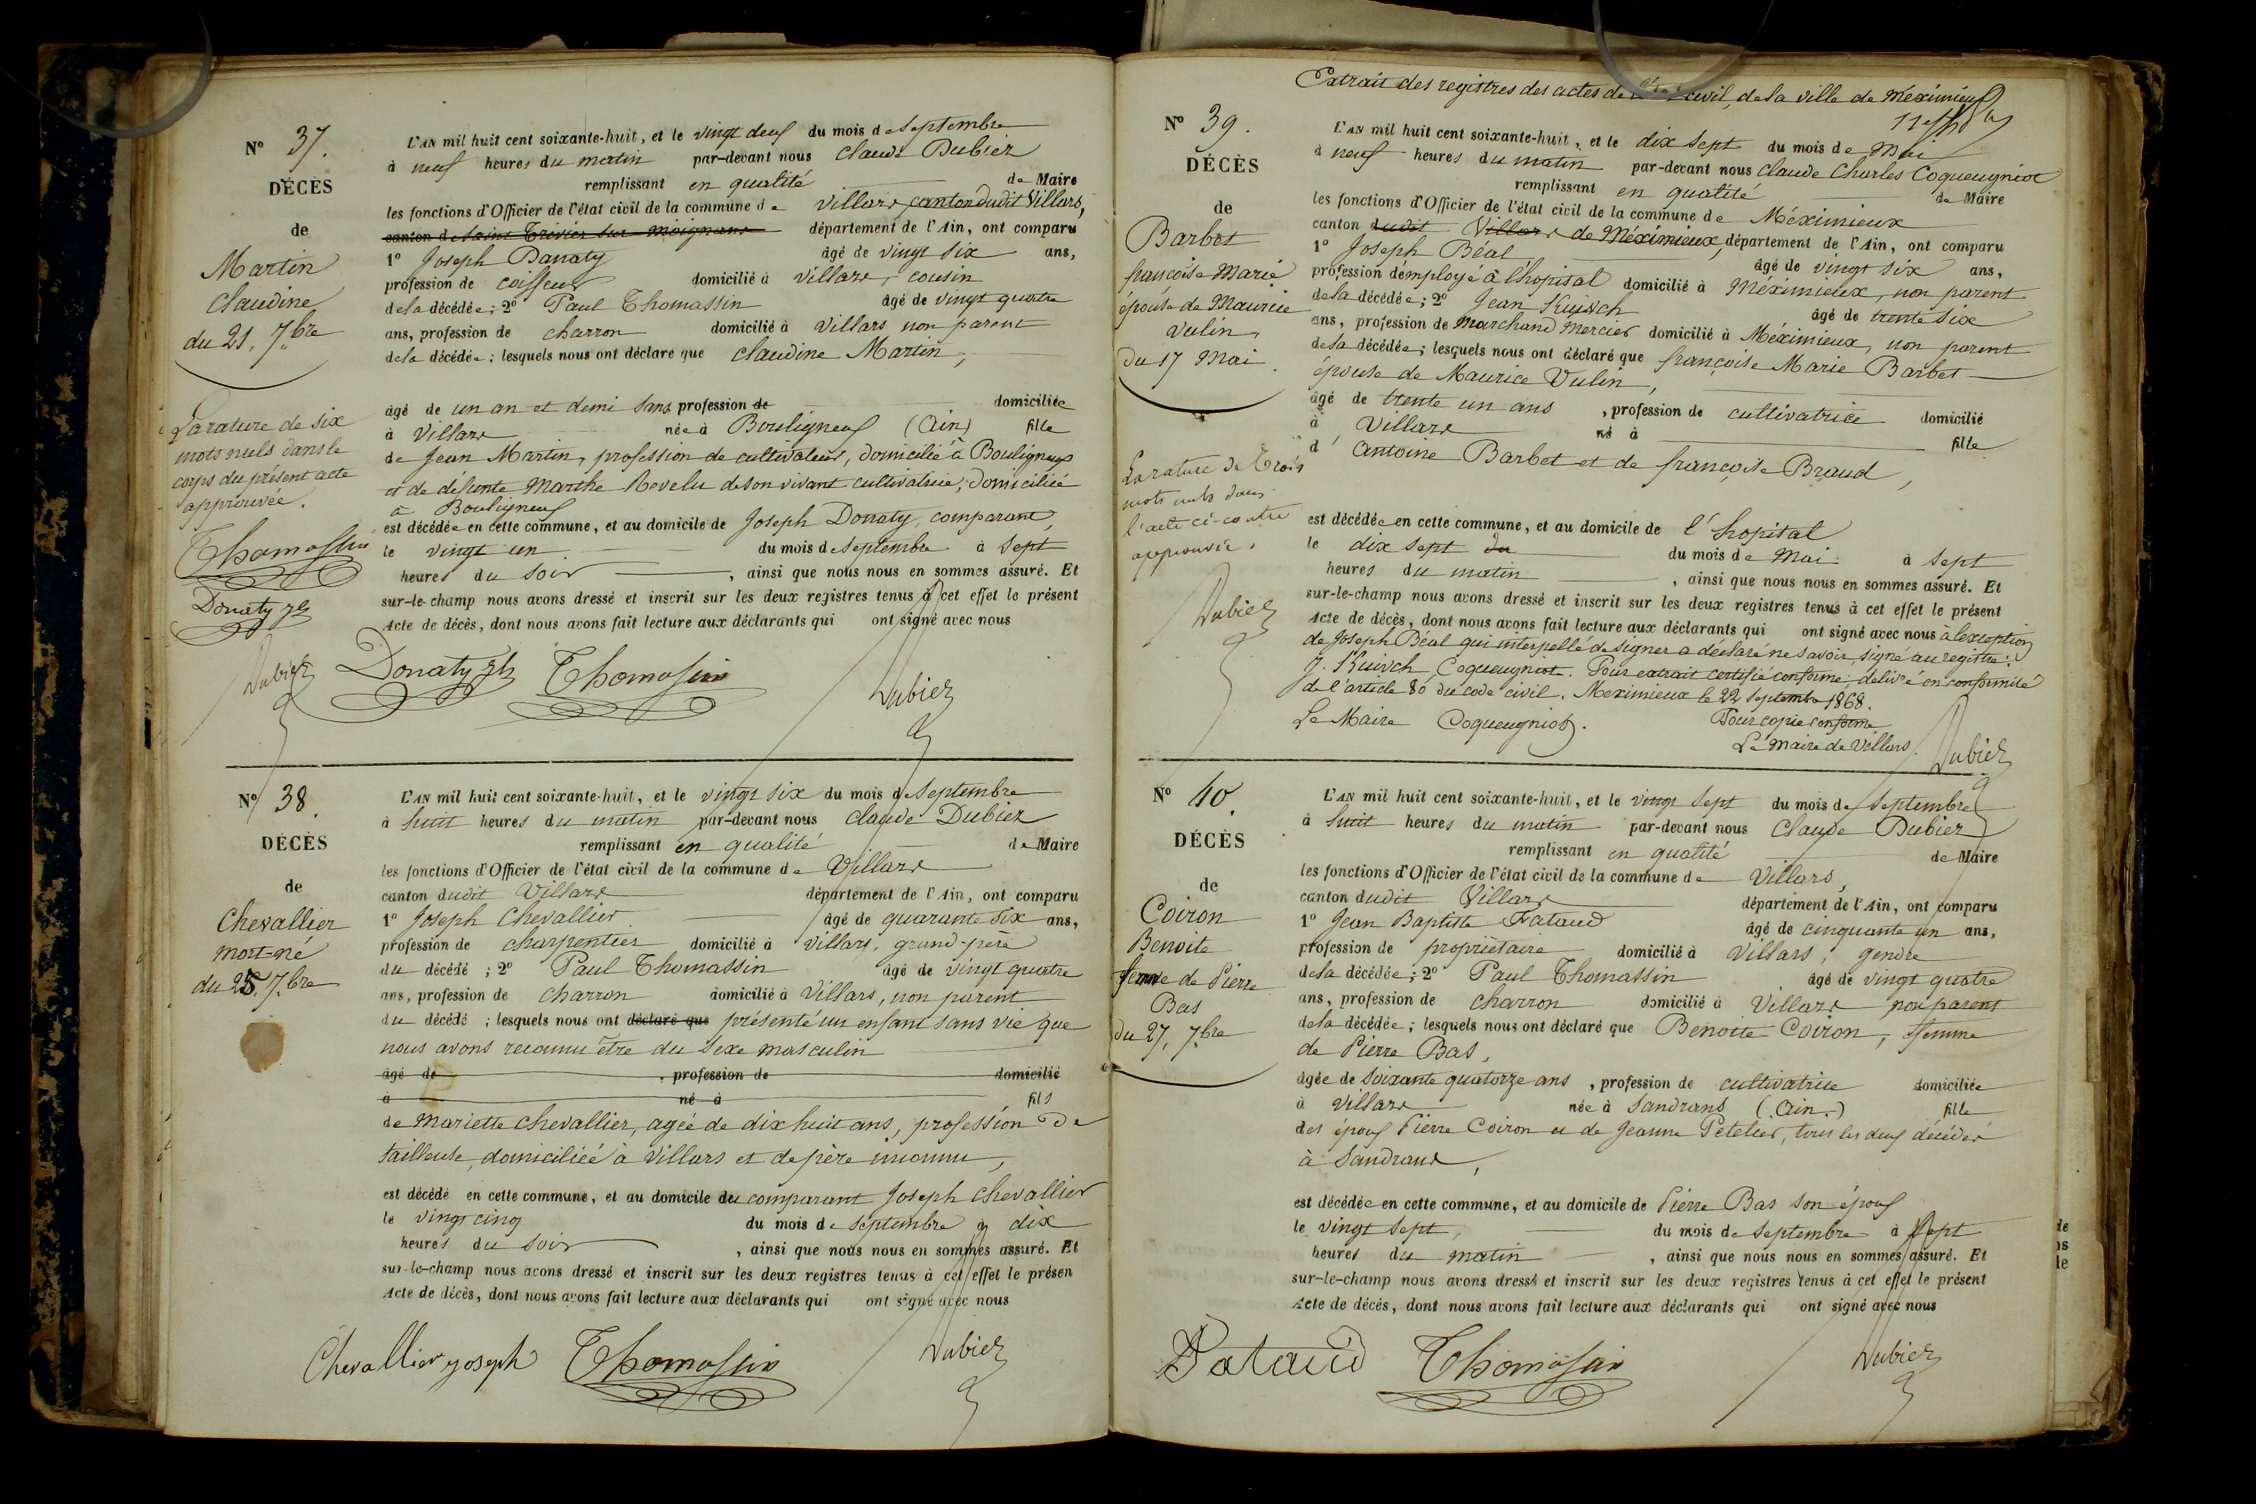 Nº 37.
DÉCÈS
de
Martin
Claudine
du 21. 7.bre
La rature de six
mots nuls dans le
corps du présent acte
approuvée.
Thomassin
Donaty
Dubiez
L'AN mil huit cent soixante-huit, et le vingt deux du mois de Septembre
à neuf heures du matin par-devant nous Claude Dubiez
remplissant en qualité de Maire
les fonctions d'Officier de l'état civil de la commune de Villars, canton dudit Villars,
canton de Saint Trivier sur Moignans département de l'Ain, ont comparu
1º Joseph Donaty âgé de vingt six ans,
profession de coiffeur domicilié à Villars, cousin
de la décédée; 2º Paul Thomassin âgé de vingt quatre
ans, profession de charron domicilié à Villars non parent
de la décédée; lesquels nous ont déclaré que Claudine Martin,
âgé de un an et demi sans profession de domiciliée
à Villars née à Bouligneux (Ain) fille
de Jean Martin, profession de cultivateur, domicilié à Bouligneux
et de défunte Marthe Revelu de son vivant cultivatrice, domiciliée
à Bouligneux
est décédée en cette commune, et au domicile de Joseph Donaty, comparant,
le vingt un du mois de Septembre à Sept
heures du soir, ainsi que nous nous en sommes assuré. Et
sur-le-champ nous avons dressé et inscrit sur les deux registres tenus à cet effet le présent
Acte de décès, dont nous avons fait lecture aux déclarants qui ont signé avec nous
Donaty Thomassin Dubiez
Nº 38.
DÉCÈS
de
Chevallier
mort-né
du 25. 7.bre
L'AN mil huit cent soixante-huit, et le vingt six du mois de Septembre
à huit heures du matin par-devant nous Claude Dubiez
remplissant en qualité de Maire
les fonctions d'Officier de l'état civil de la commune de Villars
canton dudit Villars département de l'Ain, ont comparu
1º Joseph Chevallier âgé de quarante six ans,
profession de charpentier domicilié à Villars, grand-père
du décédé ; 2º Paul Thomassin âgé de vingt quatre
ans, profession de charron domicilié à Villars, non parent
du décédé ; lesquels nous ont déclaré que présenté un enfant sans vie que
nous avons reconnu être du sexe masculin
âgé de , profession de domicilié
à né à fils
de Mariette Chevallier, agée de dix huit ans, profession de
tailleuse, domiciliée à Villars et de père inconnu,
est décédé en cette commune, et au domicile du comparant Joseph Chevallier
le vingt cinq du mois de Septembre à dix
heures du soir , ainsi que nous nous en sommes assuré. Et
sur-le-champ nous avons dressé et inscrit sur les deux registres tenus à cet effet le présen
Acte de décès, dont nous avons fait lecture aux déclarants qui ont signé avec nous
Chevallier joseph Thomassin Dubiez
Extrait des registres des actes de civil, de la ville de Méximieux
Nº 39.
DÉCÈS
de
Barbet
françoise Marie
épouse de Maurice
Vulin
du 17 Mai.
La rature de Trois
mots nuls dans
l'acte ci-contre
approuvée.
Dubiez
L'AN mil huit cent soixante-huit, et le dix sept du mois de Mai
à neuf heures du matin par-devant nous Claude Charles Coqueugniot
remplissant en qualité de Maire
les fonctions d'Officier de l'état civil de la commune de Méximieux
canton dudit Villars de Méximieux, département de l'Ain, ont comparu
1º Joseph Béal âgé de vingt six ans,
profession d'employé à l'hopital domicilié à Méximieux, non parent
de la décédée; 2º Jean Kuivch âgé de trente six
ans, profession de marchand Mercier domicilié à Méximieux, non parent
de la décédée; lesquels nous ont déclaré que françoise Marie Barbet
épouse de Maurice Vulin,
âgé de trente un ans , profession de cultivatrice domicilié
à Villars né à fille
d' Antoine Barbet et de françoise Braud,
est décédée en cette commune, et au domicile de l'hopital
le dix sept du du mois de Mai à Sept
heures du matin , ainsi que nous nous en sommes assuré. Et
sur-le-champ nous avons dressé et inscrit sur les deux registres tenus à cet effet le présent
Acte de décès, dont nous avons fait lecture aux déclarants qui ont signé avec nous à l'exception
de Joseph Béal qui interpellé de signer a déclaré ne savoir, signé au registre:
J. Kuivch, Coqueugniot. Pour extrait certifié conforme, délivré en conformité
de l'article 80 du code civil. Meximieux le 22 Septembre 1868.
Le Maire Coqueugniot. Pour copie conforme
Le maire de Villars.
Dubiez
Nº 40.
DÉCÈS
de
Coiron
Benoite
femme de Pierre
Bas
du 27. 7.bre
L'AN mil huit cent soixante-huit, et le vingt sept du mois de Septembre
à huit heures du matin par-devant nous Claude Dubiez
remplissant en qualité de Maire
les fonctions d'Officier de l'état civil de la commune de Villars,
canton dudit Villars département de l'Ain, ont comparu
1º Jean Baptiste Pataud âgé de cinquante un ans,
profession de propriétaire domicilié à Villars, gendre
de la décédée; 2º Paul Thomassin âgé de vingt quatre
ans, profession de charron domicilié à Villars non parent
de la décédée; lesquels nous ont déclaré que Benoite Coiron, femme
de Pierre Bas,
âgée de soixante quatorze ans , profession de cultivatrice domiciliée
à Villars née à Sandrans (Ain.) fille
des époux Pierre Coiron et de Jeanne Petetier, tous les deux décédés
à Sandrans,
est décédée en cette commune, et au domicile de Pierre Bas son époux
le vingt sept, du mois de Septembre à Sept
heures du matin , ainsi que nous nous en sommes assuré. Et
sur-le-champ nous avons dressé et inscrit sur les deux registres tenus à cet effet le présent
Acte de décès, dont nous avons fait lecture aux déclarants qui ont signé avec nous
Pataud Thomassin Dubiez